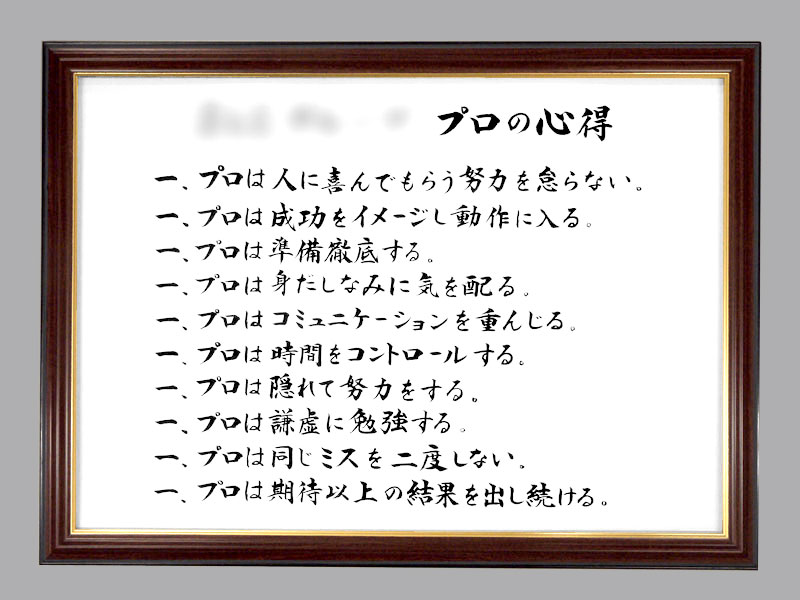 プロの心得
一、プロは人に喜んでもらう努力を怠らない。
一、プロは成功をイメージし動作に入る。
一、プロは準備徹底する。
一、プロは身だしなみに気を配る。
一、プロはコミュニケーションを重んじる。
一、プロは時間をコントロールする。
一、プロは隠れて努力をする。
一、プロは謙虚に勉強する。
一、プロは同じミスを二度しない。
一、プロは期待以上の結果を出し続ける。